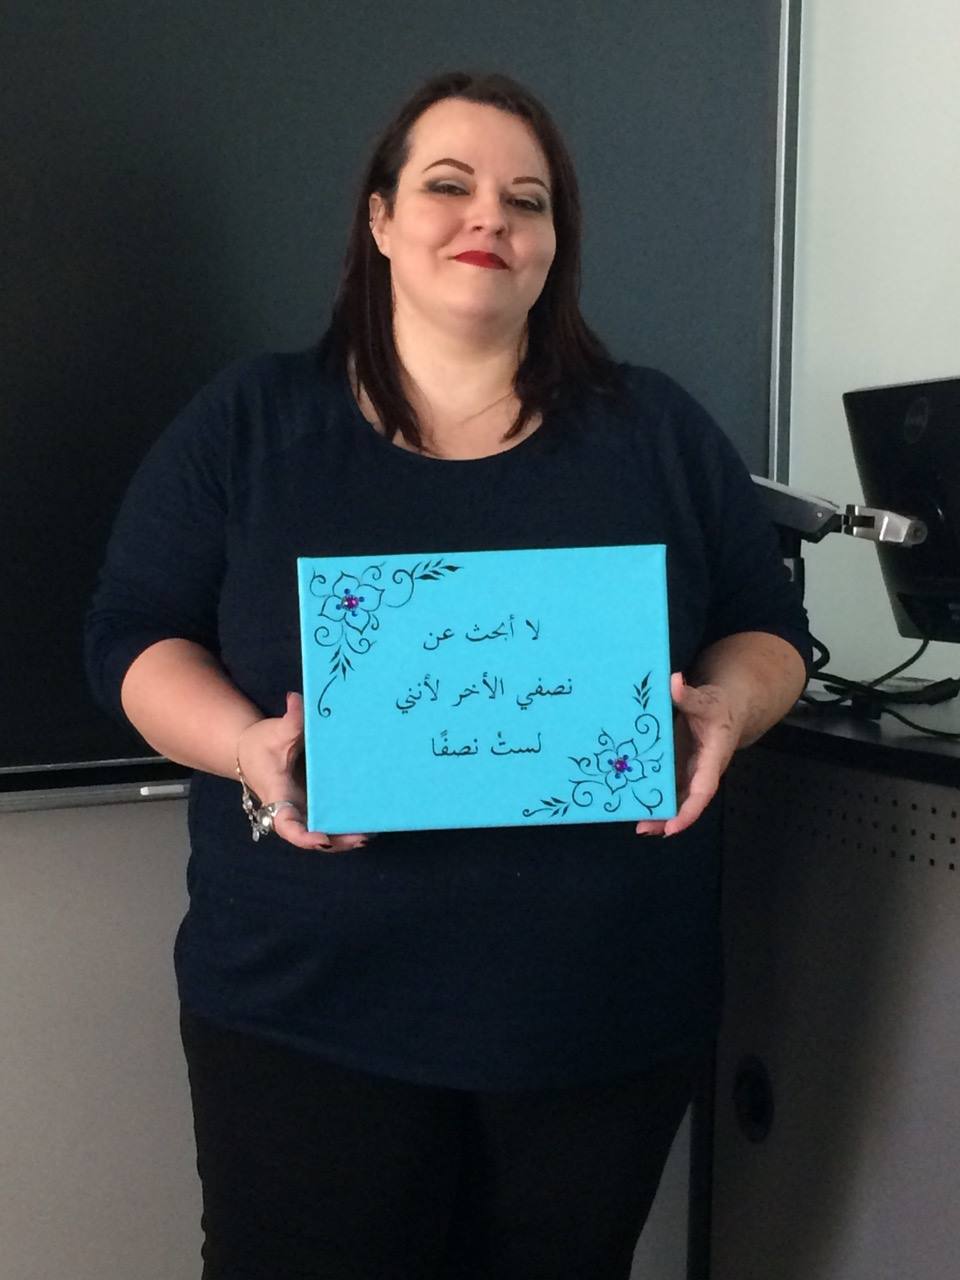 لا أبحث عن
نصفي الأخر لأنني
لستْ نصفًا